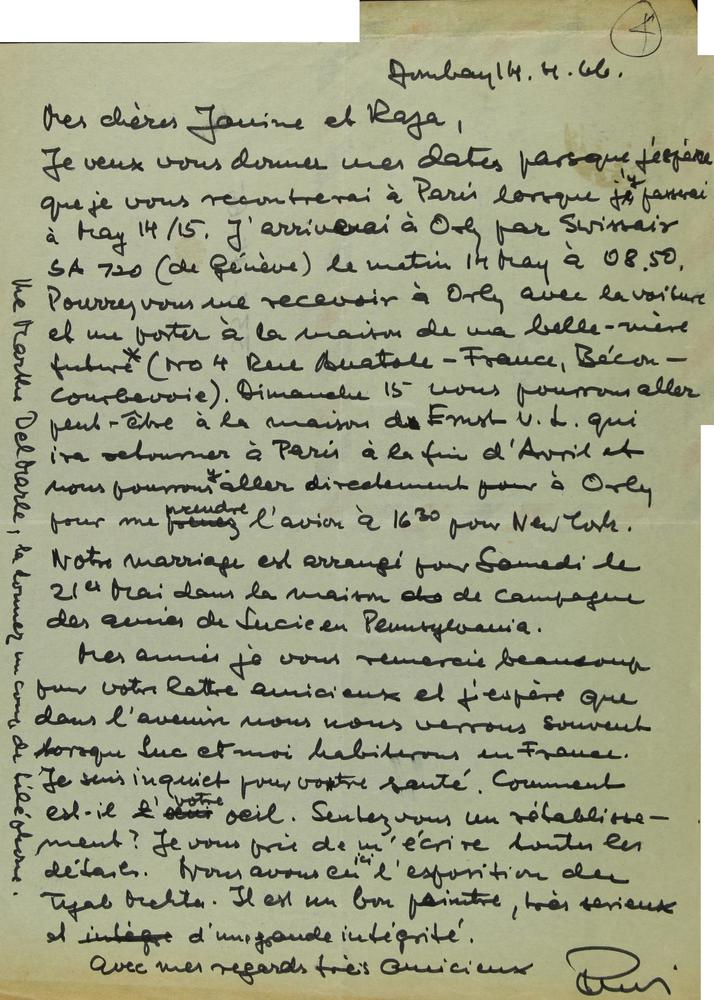 1
Bombay 14. 4. 66.
Mes chères Janine et Raza,
Je veux vous donner mes dates parsque j'espère
que je vous recontrerai à Paris lorsque je passerai
à May 14/15. J'arriverai à Orly par Swissair
SA 720 (de Génève) le matin 14 May à 08.50.
Pourrez vous me recevoir à Orly avec la voiture
et me porter à la maison de ma belle-mère
future* (No 4 Rue Anatole-France, Bécon-
Courbevoie). Dimanche 15 nous pourrons aller
peut-être à la maison de Ernst V. L. qui
ira retourner à Paris à la fin d'Avril et
nous pourrons aller directement pour à Orly
pour me prendre l'avion à 16 30 pour New York.
Notre marriage est arrangé pour Samedi le
21er Mai dans la maison de campagne
des amies de Lucie en Pennsylvania.
Mes amies je vous remercie beaucoup
pour votre lettre amicieux et j'espère que
dans l'avenir nous nous verrons souvent
lorsque Luc et moi habiterons en France.
Je suis inquiet pour votre santé. Comment
est-il votre oeil. Sentez vous un rétablisse-
ment? Je vous prie de m'écrire toutes les
détails. Nous avons eu ici l'exposition de
Tyeb Mehta. Il est un bon peintre, très serieux
et intègre d'une grande intégrité.
Avec mes regards très amicieux
Rudi
Me Marthe Delmarle, la donnez un coup de téléphone.